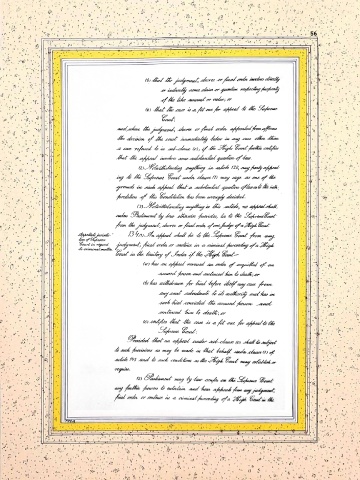 56
(b) that the judgment, decree or final order involves directly
or indirectly some claim or question respecting property
of the like amount or value; or
(c) that the case is a fit one for appeal to the Supreme
Court;
and, where the judgment, decree or final order appealed from affirms
the decision of the court immediately below in any case other than
a case referred to in sub-clause (c), if the High Court further certifies
that the appeal involves some substantial question of law.
(2) Notwithstanding anything in article 132, any party appeal-
ing to the Supreme Court under clause (1) may urge as one of the
grounds in such appeal that a substantial question of law as to the inter-
pretation of this Constitution has been wrongly decided.
(3) Notwithstanding anything in this article, no appeal shall,
unless Parliament by law otherwise provides, lie to the Supreme Court
from the judgment, decree or final order of one Judge of a High Court.
Appellate jurisdic-
tion of Supreme
Court in regard
to criminal matters.
134. (1) An appeal shall lie to the Supreme Court from any
judgment, final order or sentence in a criminal proceeding of a High
Court in the territory of India if the High Court—
(a) has on appeal reversed an order of acquittal of an
accused person and sentenced him to death; or
(b) has withdrawn for trial before itself any case from
any court subordinate to its authority and has in
such trial convicted the accused person and
sentenced him to death; or
(c) certifies that the case is a fit one for appeal to the
Supreme Court:
Provided that an appeal under sub-clause (c) shall lie subject
to such provisions as may be made in that behalf under clause (1) of
article 145 and to such conditions as the High Court may establish or
require.
(2) Parliament may by law confer on the Supreme Court
any further powers to entertain and hear appeals from any judgment,
final order or sentence in a criminal proceeding of a High Court in the